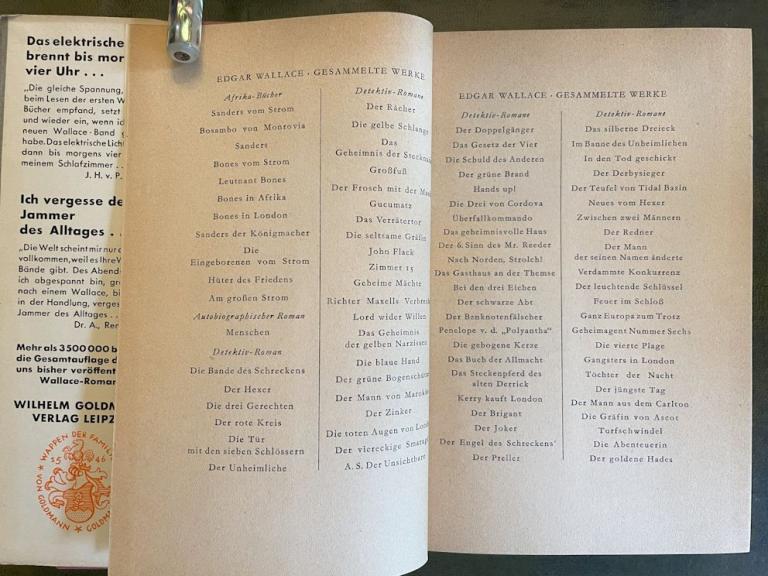 Das elektrische
brennt bis mor
vier Uhr . . .
„Die gleiche Spannung,
beim Lesen der ersten W
Bücher empfand, setzt
und wieder ein, wenn ic
neuen Wallace-Band g
habe. Das elektrische Lich
dann bis morgens vier
meinem Schlafzimmer . .
J. H. v. P.
Ich vergesse de
Jammer
des Alltages . .
„Die Welt scheint mir nur
vollkommen, weil es Ihre W
Bände gibt. Des Abend
ich abgespannt bin, gr
nach einem Wallace, bi
in der Handlung, verges
Jammer des Alltages . .
Dr. A., Ren
Mehr als 3500000 b
die Gesamtauflage d
uns bisher veröffent
Wallace-Roman
WILHELM GOLDM
VERLAG LEIPZ
VON GOLDMANN WAPPEN DER FAMIL
15 46
GOLDM
EDGAR WALLACE · GESAMMELTE WERKE
Afrika-Bücher
Sanders vom Strom
Bosambo von Monrovia
Sanders
Bones vom Strom
Leutnant Bones
Bones in Afrika
Bones in London
Sanders der Königmacher
Die
Eingeborenen vom Strom
Hüter des Friedens
Am großen Strom
Autobiographischer Roman
Menschen
Detektiv-Roman
Die Bande des Schreckens
Der Hexer
Die drei Gerechten
Der rote Kreis
Die Tür
mit den sieben Schlössern
Der Unheimliche
Detektiv-Romane
Der Rächer
Die gelbe Schlange
Das
Geheimnis der Stecknadel
Großfuß
Der Frosch mit der Mas
Gucumatz
Das Verrätertor
Die seltsame Gräfin
John Flack
Zimmer 13
Geheime Mächte
Richter Maxells Verbre
Lord wider Willen
Das Geheimnis
der gelben Narzissen
Die blaue Hand
Der grüne Bogenschütze
Der Mann von Marokko
Der Zinker
Die toten Augen von Lond
Der viereckige Smaragd
A. S. Der Unsichtbare
EDGAR WALLACE · GESAMMELTE WERKE
Detektiv-Romane
Der Doppelgänger
Das Gesetz der Vier
Die Schuld des Anderen
Der grüne Brand
Hands up!
Die Drei von Cordova
Überfallkommando
Das geheimnisvolle Haus
Der 6. Sinn des Mr. Reeder
Nach Norden, Strolch!
Das Gasthaus an der Themse
Bei den drei Eichen
Der schwarze Abt
Der Banknotenfälscher
Penelope v. d. „Polyantha“
Die gebogene Kerze
Das Buch der Allmacht
Das Steckenpferd des
alten Derrick
Kerry kauft London
Der Brigant
Der Joker
Der Engel des Schreckens
Der Preller
Detektiv-Romane
Das silberne Dreieck
Im Banne des Unheimlichen
In den Tod geschickt
Der Derbysieger
Der Teufel von Tidal Basin
Neues vom Hexer
Zwischen zwei Männern
Der Redner
Der Mann
der seinen Namen änderte
Verdammte Konkurrenz
Der leuchtende Schlüssel
Feuer im Schloß
Ganz Europa zum Trotz
Geheimagent Nummer Sechs
Die vierte Plage
Gangsters in London
Töchter der Nacht
Der jüngste Tag
Der Mann aus dem Carlton
Die Gräfin von Ascot
Turfschwindel
Die Abenteuerin
Der goldene Hades